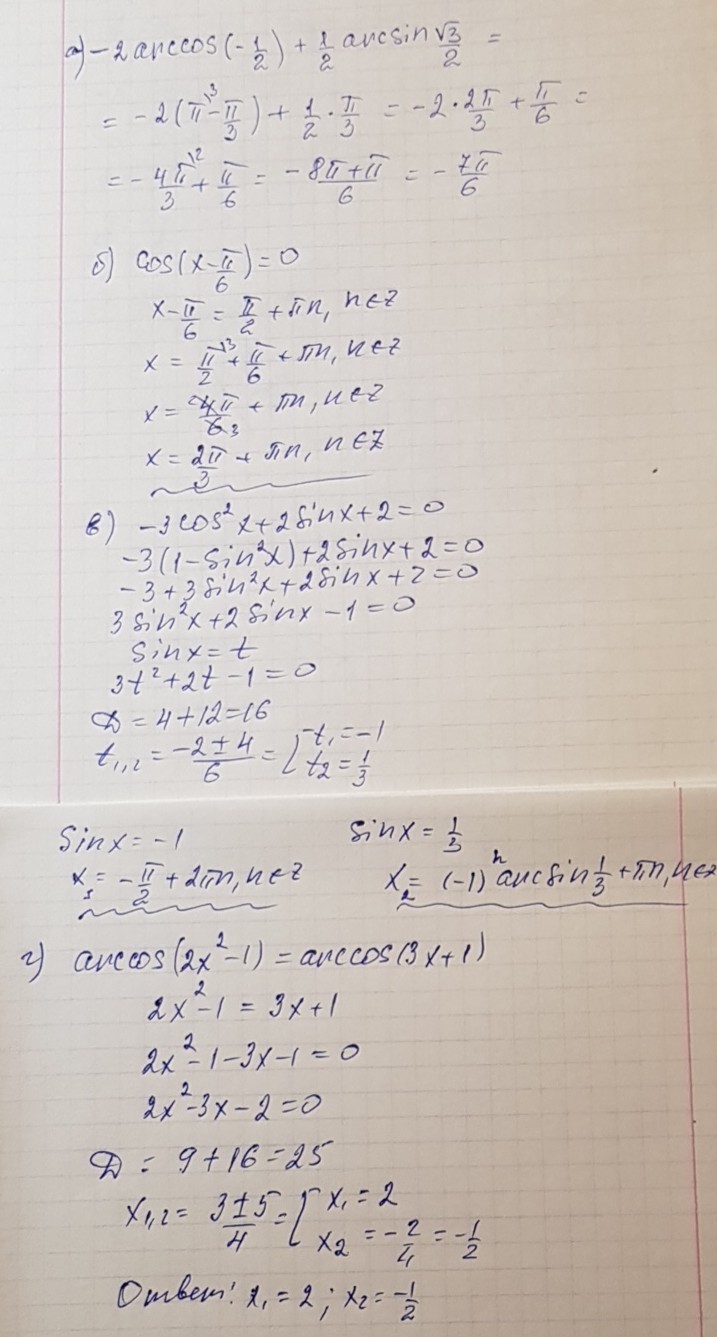 а) -2 arccos(-1/2) + 1/2 arcsin √3/2 =
= -2(π\3 - π/3) + 1/2 · π/3 = -2 · 2π/3 + π/6 =
= -4π/3\2 + π/6 = -8π+π/6 = -7π/6
б) cos(x - π/6) = 0
x - π/6 = π/2 + πn, n∈Z
x = π/2\3 + π/6 + πn, n∈Z
x = 4π/6 3 + πn, n∈Z
x = 2π/3 + πn, n∈Z
в) -3cos²x + 2sinx + 2 = 0
-3(1 - sin²x) + 2sinx + 2 = 0
-3 + 3sin²x + 2sinx + 2 = 0
3sin²x + 2sinx - 1 = 0
sinx = t
3t² + 2t - 1 = 0
D = 4 + 12 = 16
t1,2 = -2±4/6 = [ t1 = -1
t2 = 1/3
Sinx = -1 sinx = 1/3
x1 = -π/2 + 2πn, n∈Z x2 = (-1)ⁿ arcsin 1/3 + πn, n∈Z
г) arccos(2x² - 1) = arccos(3x + 1)
2x² - 1 = 3x + 1
2x² - 1 - 3x - 1 = 0
2x² - 3x - 2 = 0
D = 9 + 16 = 25
x1,2 = 3±5/4 = [ x1 = 2
x2 = -2/4 = -1/2
Ответ: x1 = 2; x2 = -1/2